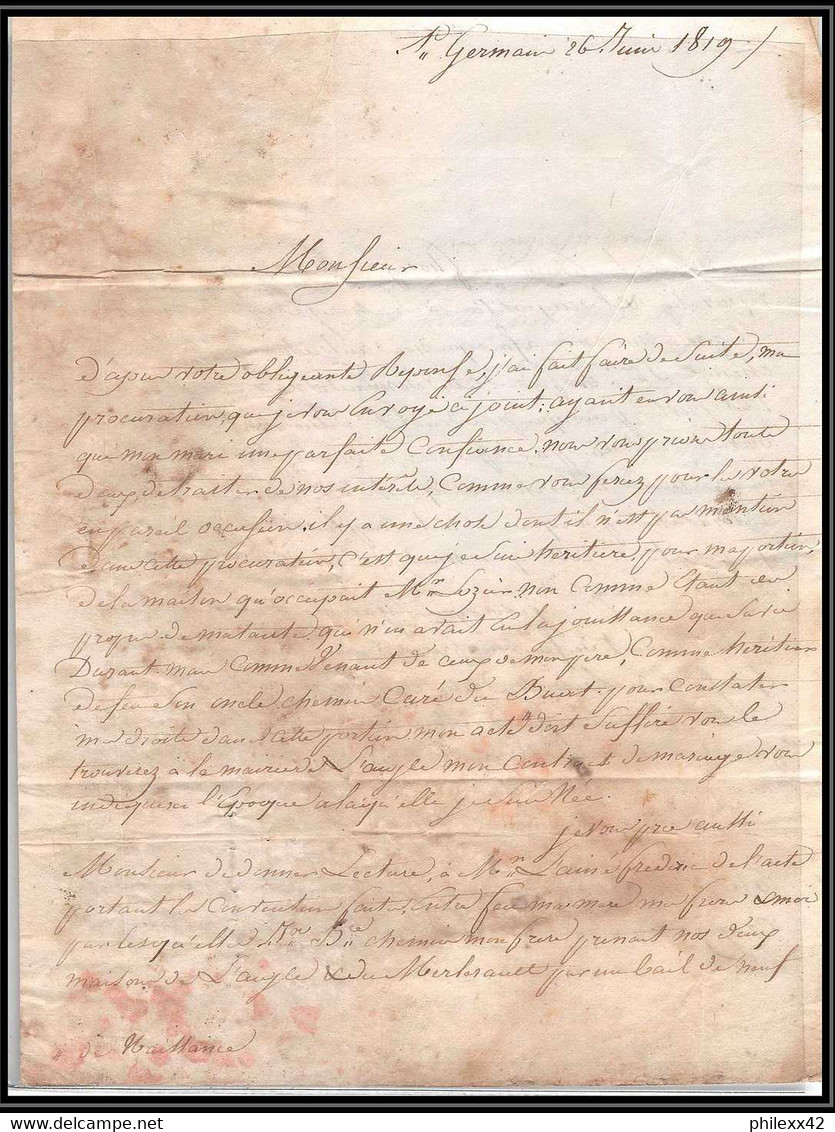 St Germain 26 Juin 1819
Monsieur
d'apres votre obligeante Reponse, j'ai fait faire de suite, ma
procuration, que je vous Envoye ci joint; ayant en vous ainsi
que mon mari une parfaite Confiance, nous vous prions toute
deux de traiter de nos interets, Comme vous feriez pour les votre
en pareil occasion. il y a une chose dont il n'est pas mention
dans cette procuration, C'est que je suis heritiere, pour ma portion,
de la maison qu'occupait Mr Lozier, non Comme Etant en
propre de ma tante, qui n'en avait Eu la jouissance que sa vie
Durant mais Comme Venant de ceux de mon pere, Comme heritier
de feu son oncle, chemin Curé du Buat. pour Constater
me droits dans cette portion mon acte " doit suffire vous le
trouverez à la mairie de L'aigle mon Contract de mariage vous
indiquera l'Epoque a laqu'elle je suis Née.
je vous prie aussi
Monsieur de donner Lecture, à Mr Lainé frederic de l'acte
portant les Convention faite, Entre feu ma mere mon frere & moi
par lesqu'elle Mr Bte chemin mon frere prenait nos deux
maisons de L'aigle & du Merlerault par un bail de neuf
" de Naissance
philexx42